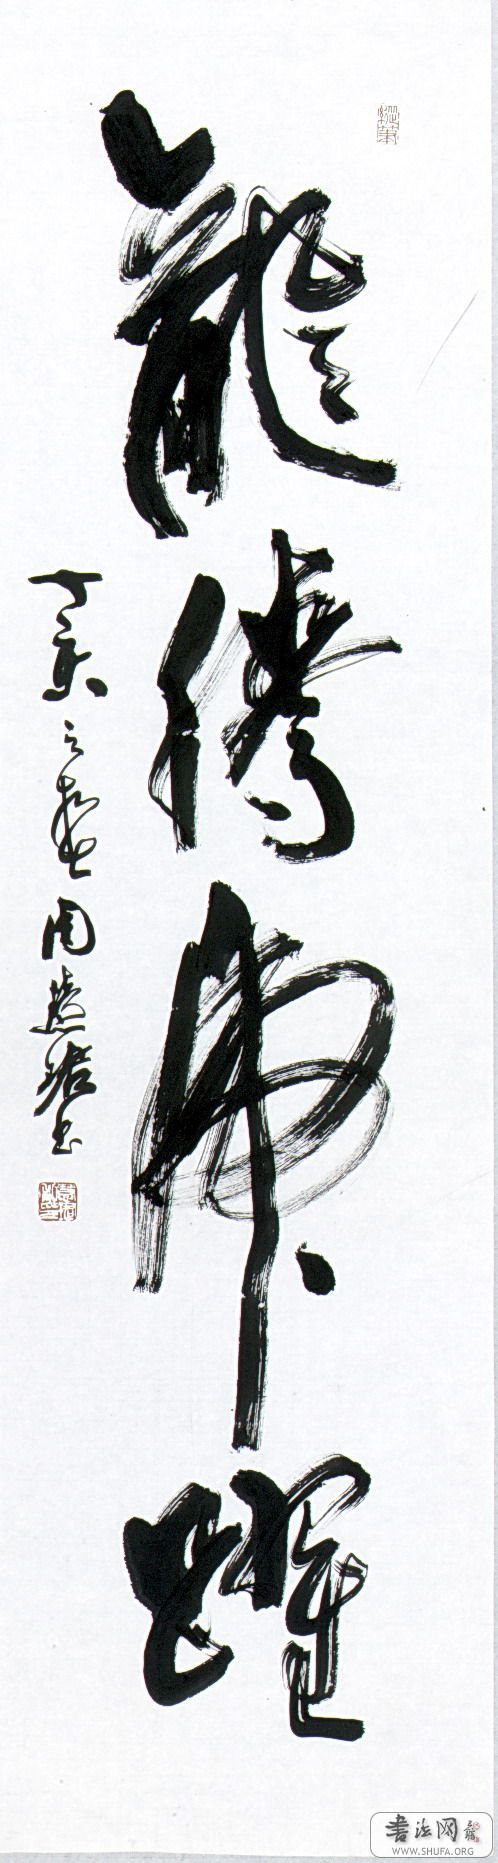 龍騰虎躍
丁亥之春周慧珺书
书法网
WWW.SHUFA.ORG